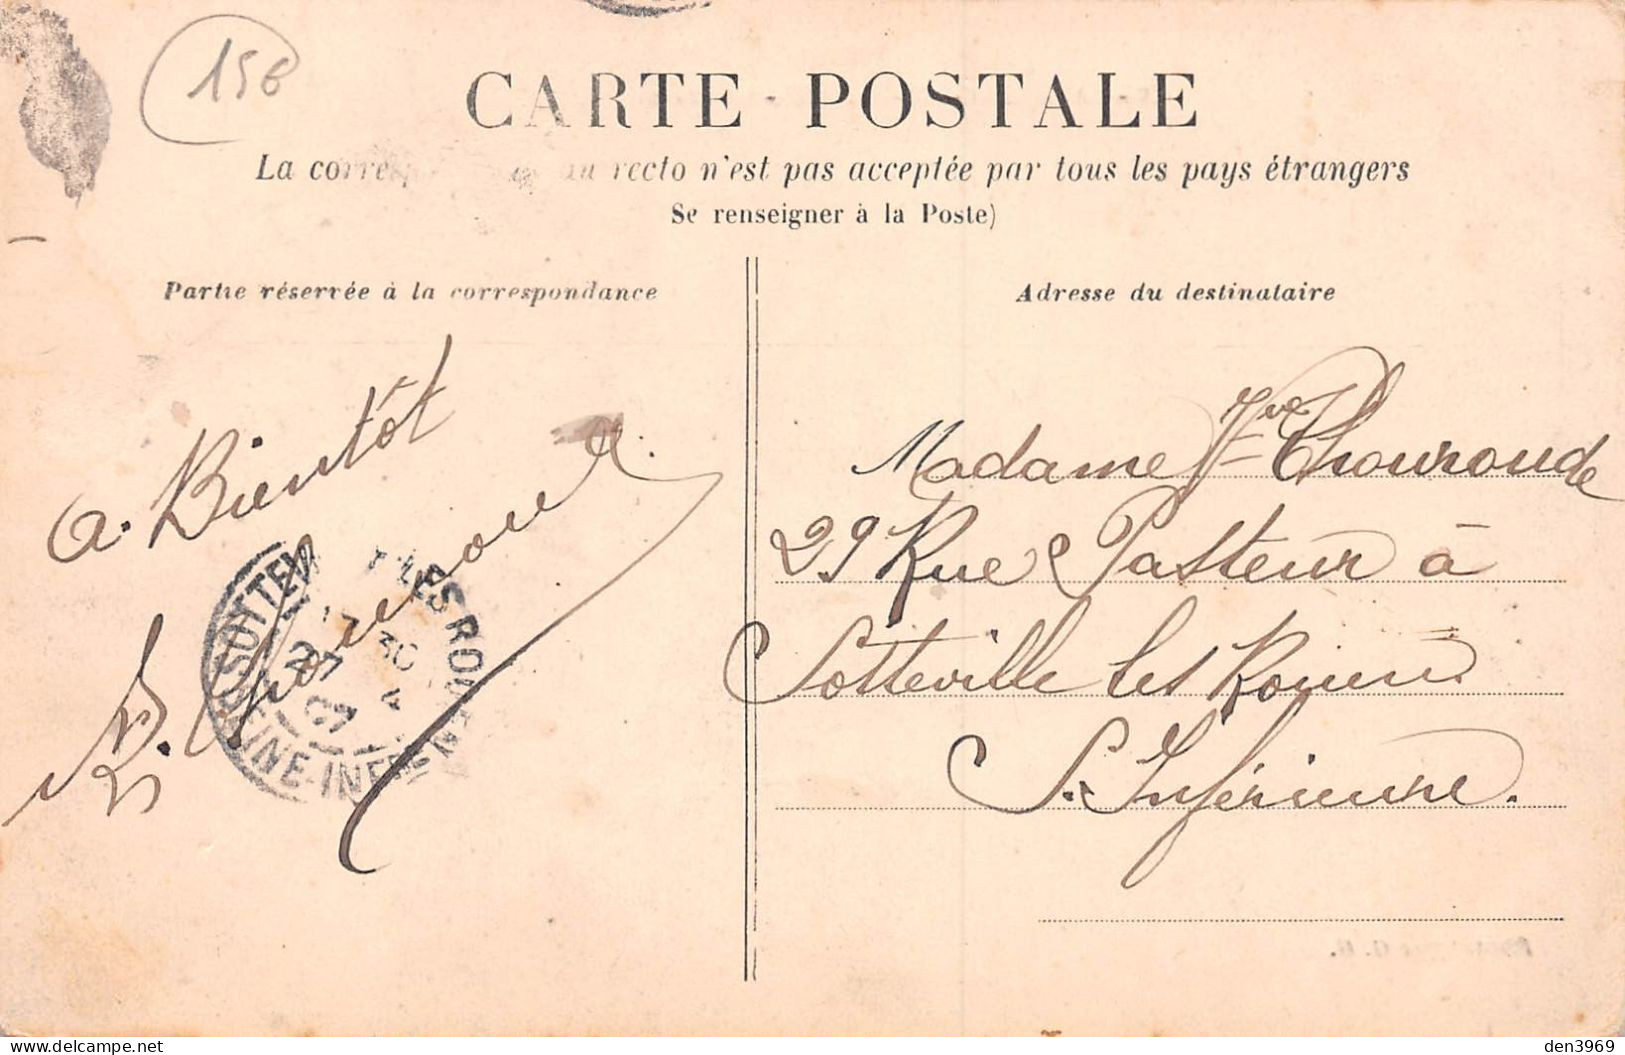 15€
CARTE POSTALE
La corresp au recto n'est pas acceptée par tous les pays étrangers
Se renseigner à la Poste)
Partie réservée à la correspondance
Adresse du destinataire
a. Bientôt
Madame Vve Thouroude
29 Rue Pasteur à
Sotteville les Rouen
S. Inférieure.
SOTTEVILLE-LES-ROUEN
17 30
27 4
07
SEINE-INFRE
delcampe.net
den3969